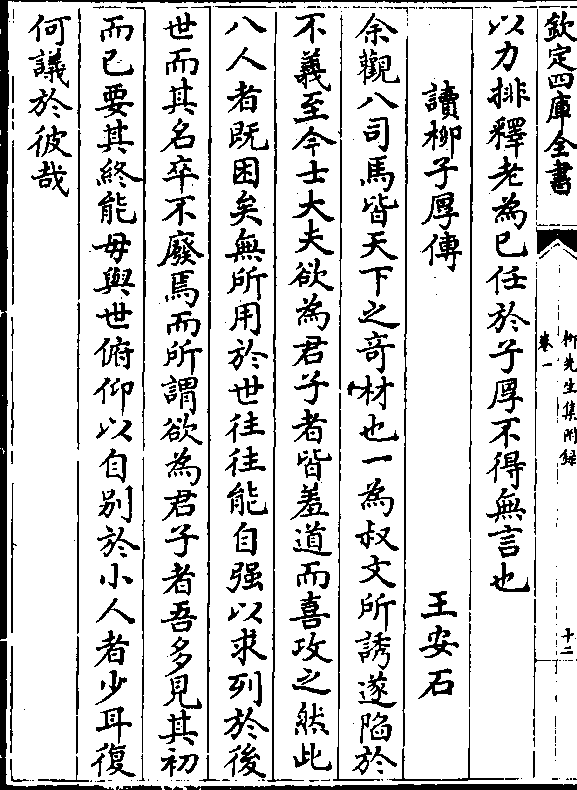 欽定四庫全書
柳先生集附録
卷一
十二
以力排釋老為已任於子厚不得無言也
讀柳子厚傳
王安石
余觀八司馬皆天下之奇材也一為叔文所誘遂陷於
不義至今士大夫欲為君子者皆羞道而喜攻之然此
八人者既困矣無所用於世往往能自强以求列於後
世而其名卒不廢焉而所謂欲為君子者吾多見其初
而已要其終能毋與世俯仰以自别於小人者少耳復
何議於彼哉